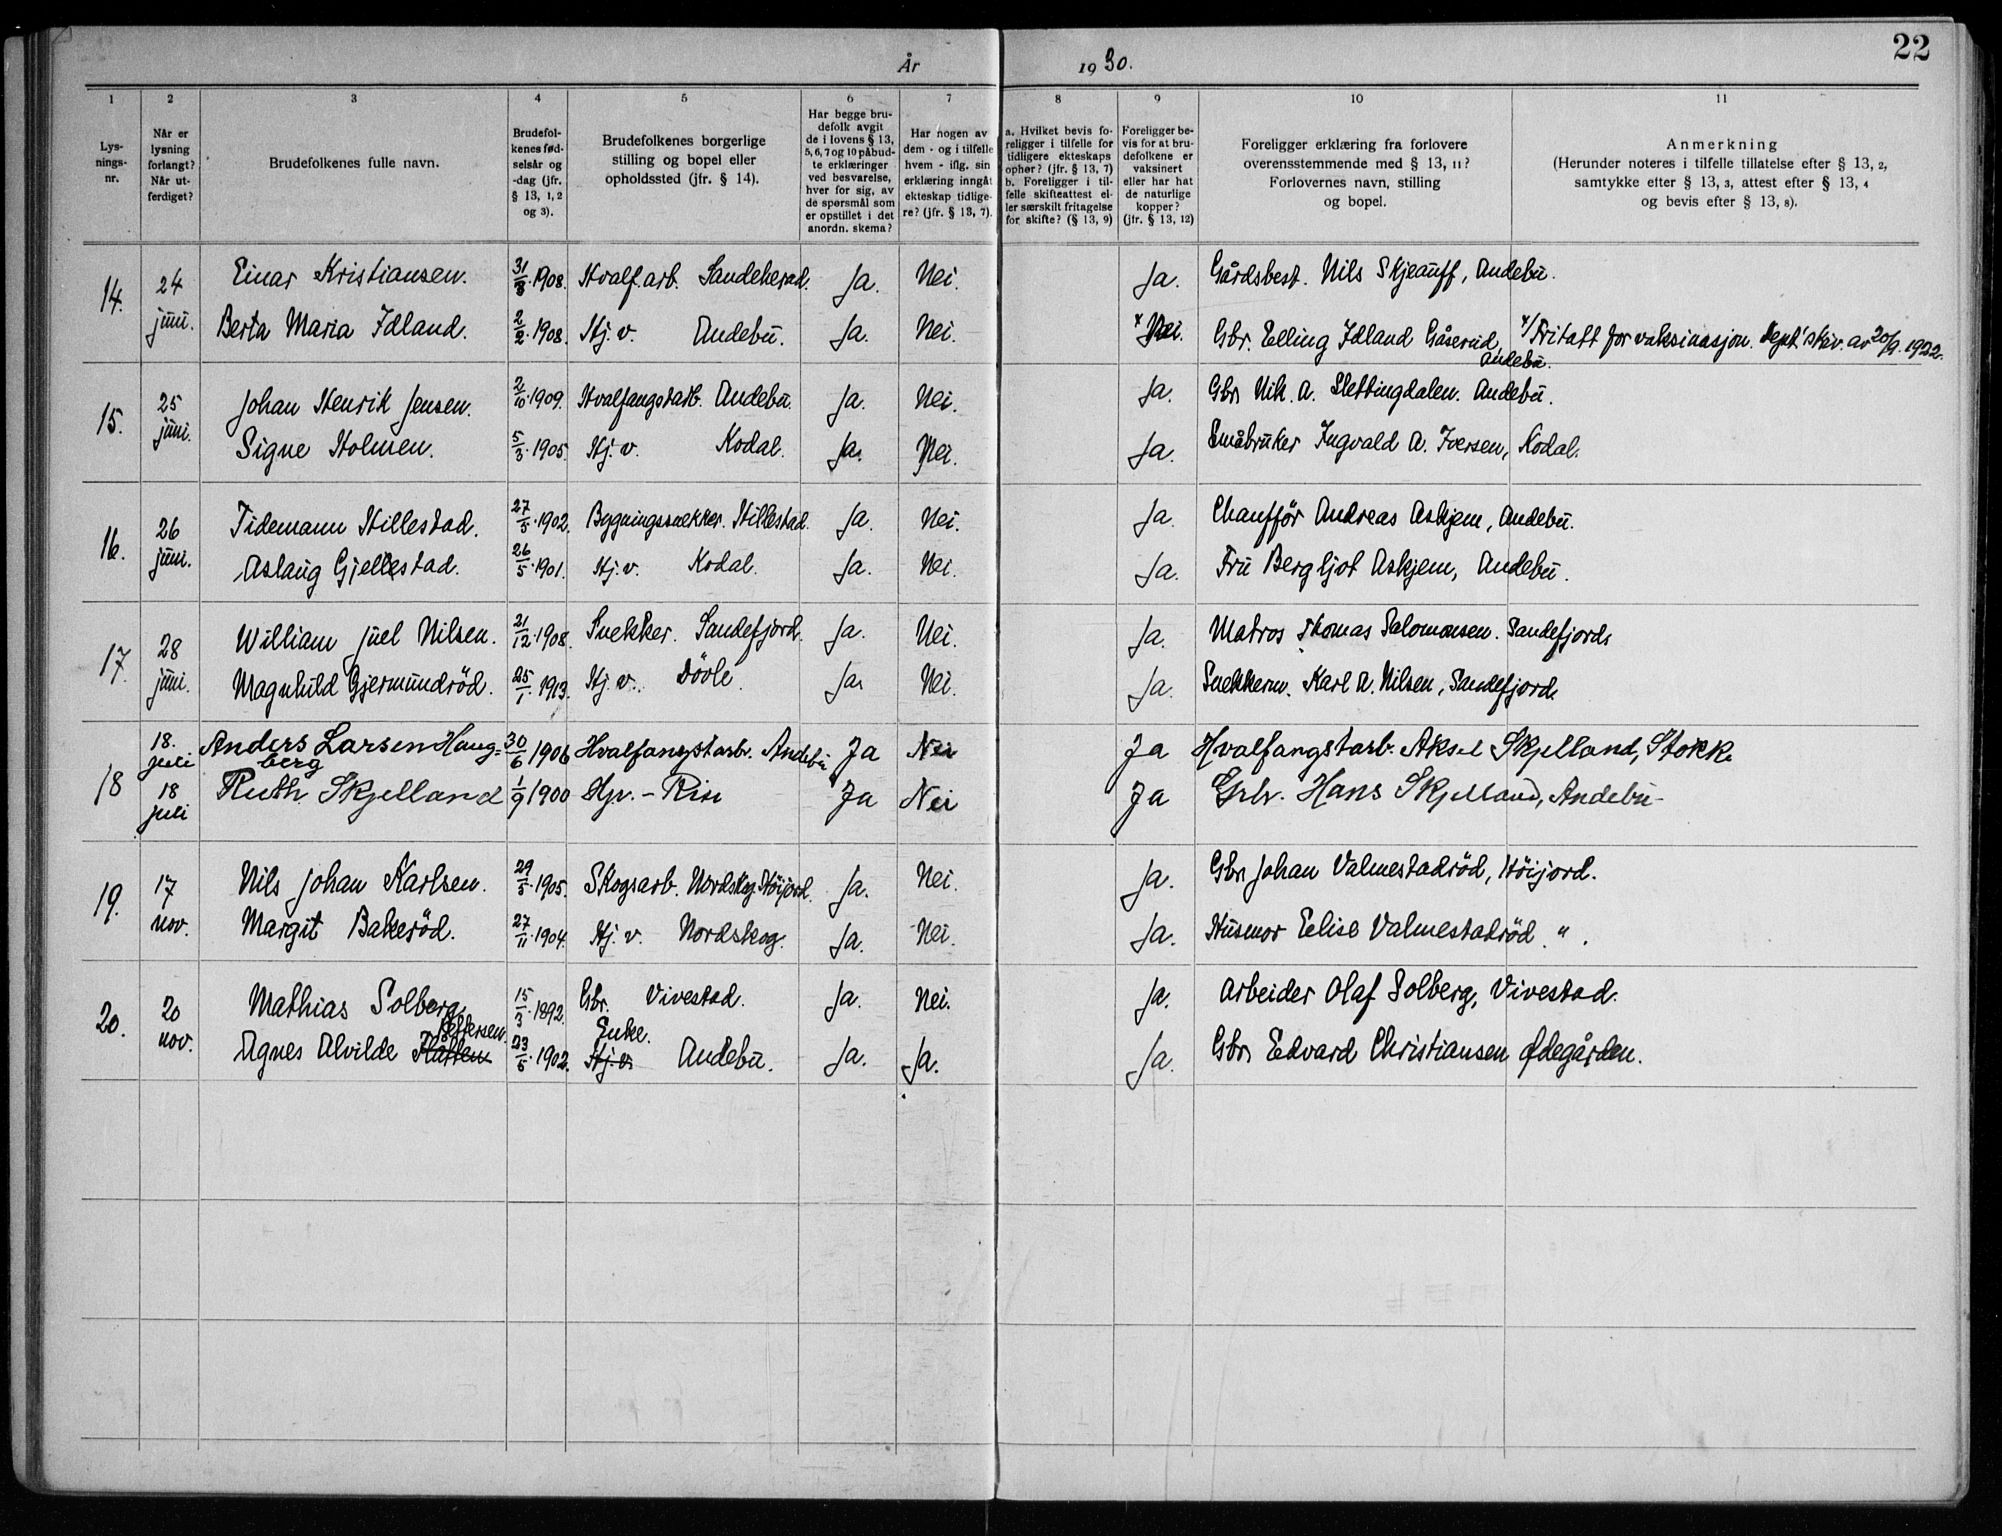 22
År 1930.
1 2 3 4 5 6 7 8 9 10 11
Lysningsnr.
Når er lysning forlangt? Når utferdiget?
Brudefolkenes fulle navn.
Brudefolkenes fødselsår og -dag (jfr. § 13, 1, 2 og 3).
Brudefolkenes borgerlige stilling og bopel eller opholdssted (jfr. § 14).
Har begge brudefolk avgit de i lovens § 13, 5, 6, 7 og 10 påbudte erklæringer ved besvarelse, hver for sig, av de spørsmål som er opstillet i det anordn. skema?
Har nogen av dem - og i tilfelle hvem - iflg. sin erklæring inngåt ekteskap tidligere? (jfr. § 13, 7).
a. Hvilket bevis foreligger i tilfelle for tidligere ekteskaps ophør? (jfr. § 13, 7) b. Foreligger i tilfelle skifteattest eller særskilt fritagelse for skifte? (§ 13, 9)
Foreligger bevis for at brudefolkene er vaksinert eller har hat de naturlige kopper? (jfr. § 13, 12)
Foreligger erklæring fra forlovere overensstemmende med § 13, 11? Forlovernes navn, stilling og bopel.
Anmerkning (Herunder noteres i tilfelle tillatelse efter § 13, 2, samtykke efter § 13, 3, attest efter § 13, 4 og bevis efter § 13, 8).
14. 24 juni. Einar Kristiansen. 31/8.1908. Hvalf.arb. Sandeherad. Ja. Nei. Ja. Gårdsbest. Nils Skjeauff, Andebu.
Berta Maria Idland. 2/2.1908. Hj.v. Andebu. Ja. Nei. x Nei. Gbr. Elling Idland Gåserud, Andebu. x/ Fritatt for vaksinasjon. Dept.' skriv. av 20/9.1922.
15. 25 juni. Johan Henrik Jensen. 2/10.1909. Hvalfangstarb. Andebu. Ja. Nei. Ja. Gbr. Nik. A. Slettingdalen. Andebu.
Signe Holmen. 5/3.1905. Hj.v. Kodal. Ja. Nei. Ja. Småbruker Ingvald A. Iversen, Kodal.
16. 26 juni. Tidemann Hillestad. 27/5.1902. Bygningssnekker. Hillestad. Ja. Nei. Ja. Chaufför Andreas Askjem, Andebu.
Aslaug Gjellestad. 26/5.1901. Hj.v. Kodal. Ja. Nei. Ja. Fru Bergljot Askjem, Andebu.
17. 28 juni. William Juel Nilsen. 21/12.1908. Snekker. Sandefjord. Ja. Nei. Ja. Matros Thomas Salomonsen. Sandefjord.
Magnhild Gjermundröd. 25/1.1913. Hj.v. Dövle. Ja. Nei. Ja. Snekkerm. Karl A. Nilsen, Sandefjord.
18 18. juli Anders Larsen Haug=berg 30/6 1906 Hvalfangstarb. Andebu Ja Nei Ja Hvalfangstarb. Aksel Skjelland, Stokk.
18 juli Ruth Skjelland 1/9 1900 Hjv. - Rise Ja Nei Ja Gbr. Hans Skjelland, Andebu -
19. 17 nov. Nils Johan Karlsen. 29/5.1905. Skogsarb. Nordskog. Höijord. Ja. Nei. Ja. Gbr. Johan Valmestadröd, Höijord.
Margit Bakeröd. 27/11.1904. Hj.v. Nordskog. Ja. Nei. Ja. Husmor Elise Valmestadröd " .
20. 20 nov. Mathias Solberg. 15/3.1892. Gbr. Vivestad. Ja. Nei. Ja. Arbeider Olaf Solberg, Vivestad.
Agnes Alvilde 23/5.1902. Enke. Hj.v. Andebu. Ja. Ja. Ja. Gbr. Edvard Christiansen Ødegården.